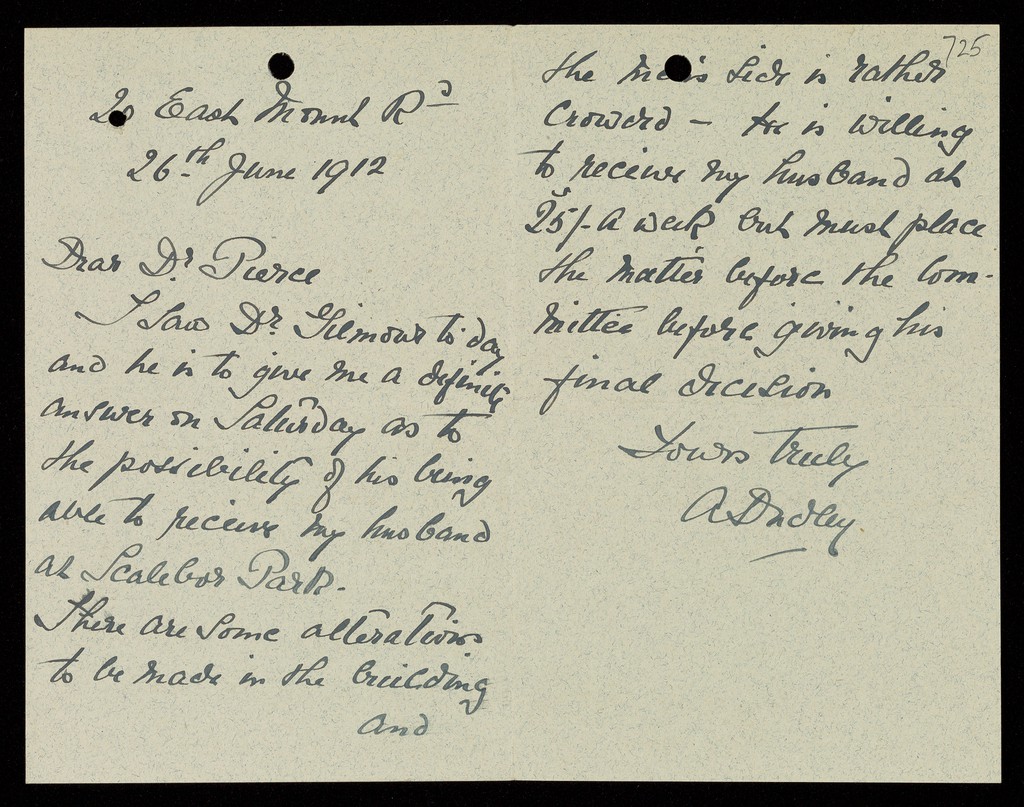 20 East Mount Rd
26th June 1912
Dear Dr Pierce
I saw Dr Gilmour to day
and he is to give me a definite
answer on Saturday as to
the possibility of his being
able to receive my husband
at Scalebor Park.
There are some alterations
to be made in the building
and
725
the men's side is rather
crowded — He is willing
to receive my husband at
25/- a week but must place
the matter before the Com-
mittee before giving his
final decision
Yours truly
A Dudley